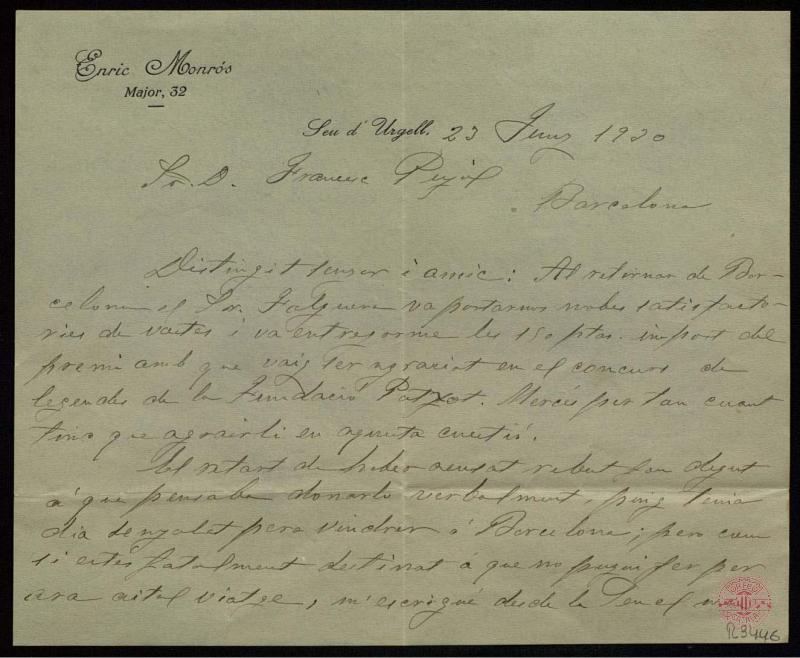 Enric Monrós
Major, 32
Seu d' Urgell. 23 Juny 1920
Sr. D. Francesc Pujol
Barcelona
Distingit senyor i amic: Al retornar de Bar-
celona el Sr. Falguera va portarmos nobes satisfacto-
ries de vostes i va entregarme les 150 ptas. import del
premi amb que vaig ser agraciat en el concurs de
legendes de la Fundació Patxot. Mercés per tan cuant
tinc que agrairli en aquesta cuestió.
El retart de haber acusat rebut fou degut
á que pensaba donarlo verbalment, puig tenia
dia senyalat pera vindrer á Barcelona; pero com
si estés fatalment destinat á que no pugui fer per
ara aital viatge, m'escrigué desde la Seu el
R3446